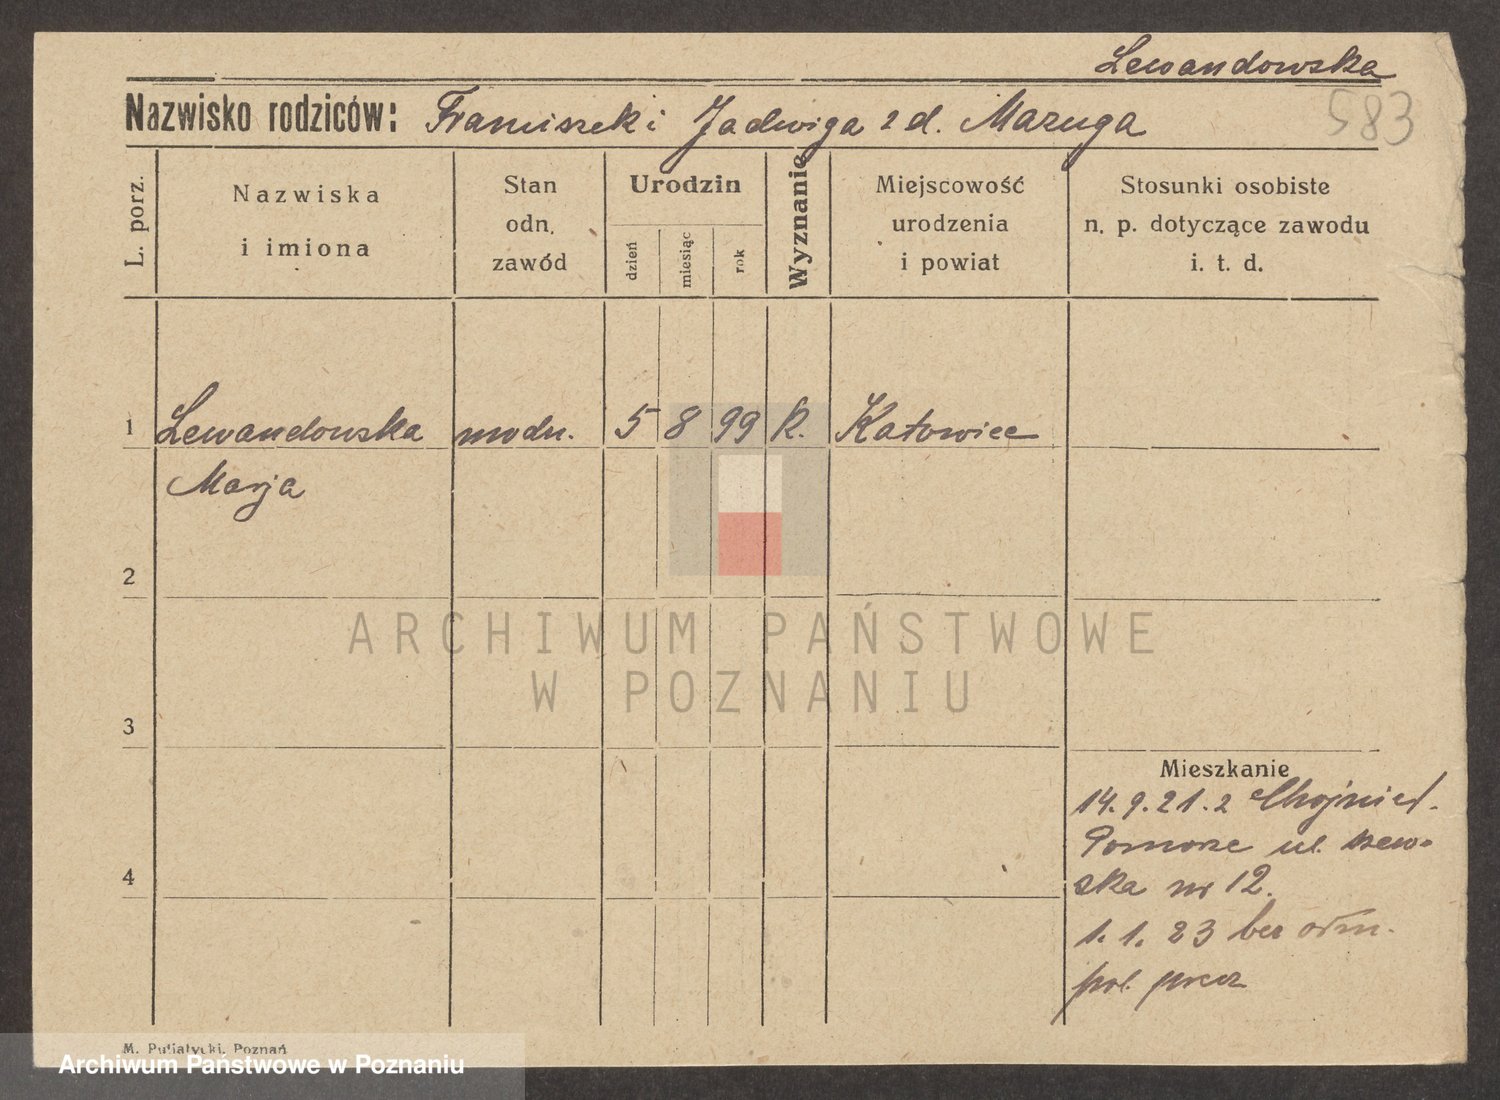 Lewandowska
Nazwisko rodziców: Franciszek i Jadwiga z d. Mazuga
583
L. porz.
Nazwiska
i imiona
Stan
odn.
zawód
Urodzin
dzień
miesiąc
rok
Wyznanie
Miejscowość
urodzenia
i powiat
Stosunki osobiste
n. p. dotyczące zawodu
i. t. d.
1 Lewandowska modn. 5 8 99 k. Katowice
Marja
2
ARCHIWUM PAŃSTWOWE
W POZNANIU
3
4
Mieszkanie
14.9.21. z
Pomorze ul.
ska nr 12.
1.1.23 bez
pol. precz
M. Putiatycki, Poznań
Archiwum Państwowe w Poznaniu